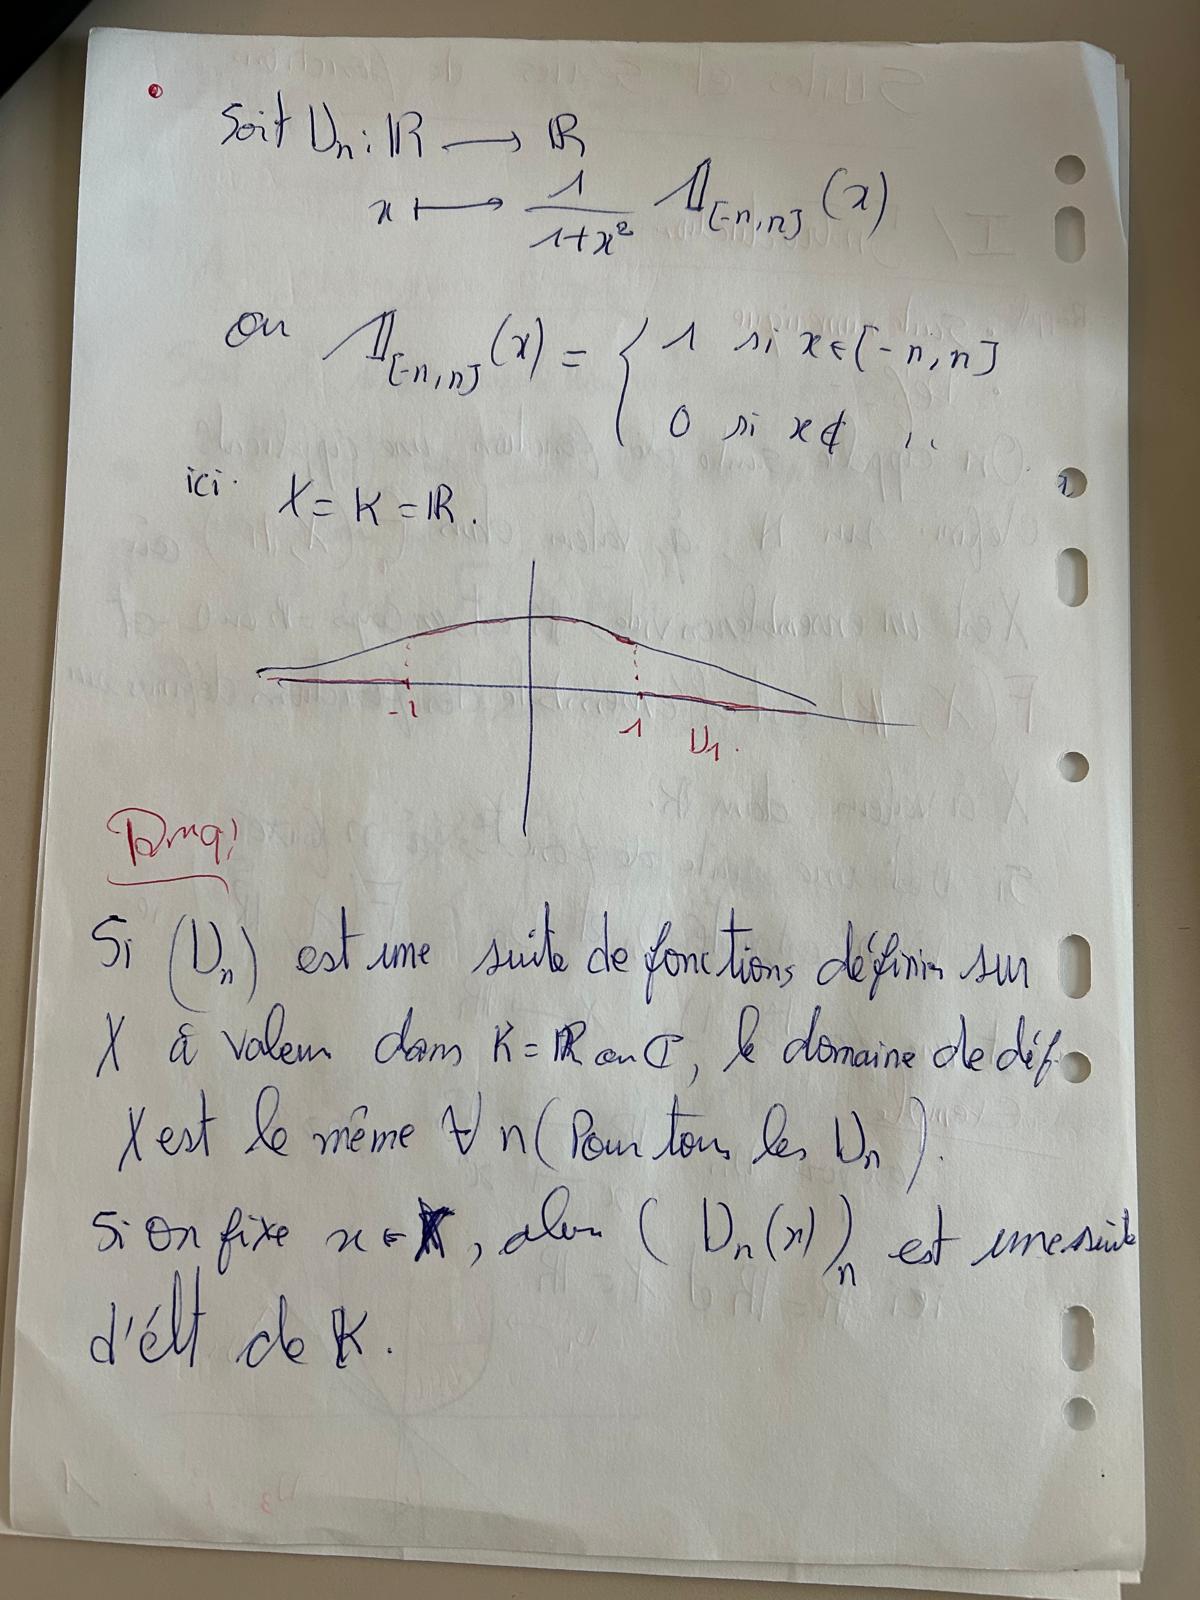 Soit Un : ℝ ⟶ ℝ
x ⟼ 1/(1+x²) 𝟙[-n,n] (x)
ou 𝟙[-n,n] (x) = { 1 si x ∈ [-n, n]
0 si x ∉ ''
ici. X = K = ℝ.
-1
1
U1.
Rmq:
Si (Un) est une suite de fonctions définies sur
X à valeur dans K = ℝ ou ℂ, le domaine de déf.
X est le même ∀ n (Pour tous les Un).
Si on fixe x ∈ X, alors (Un(x))n est une suite
d'élt de K.